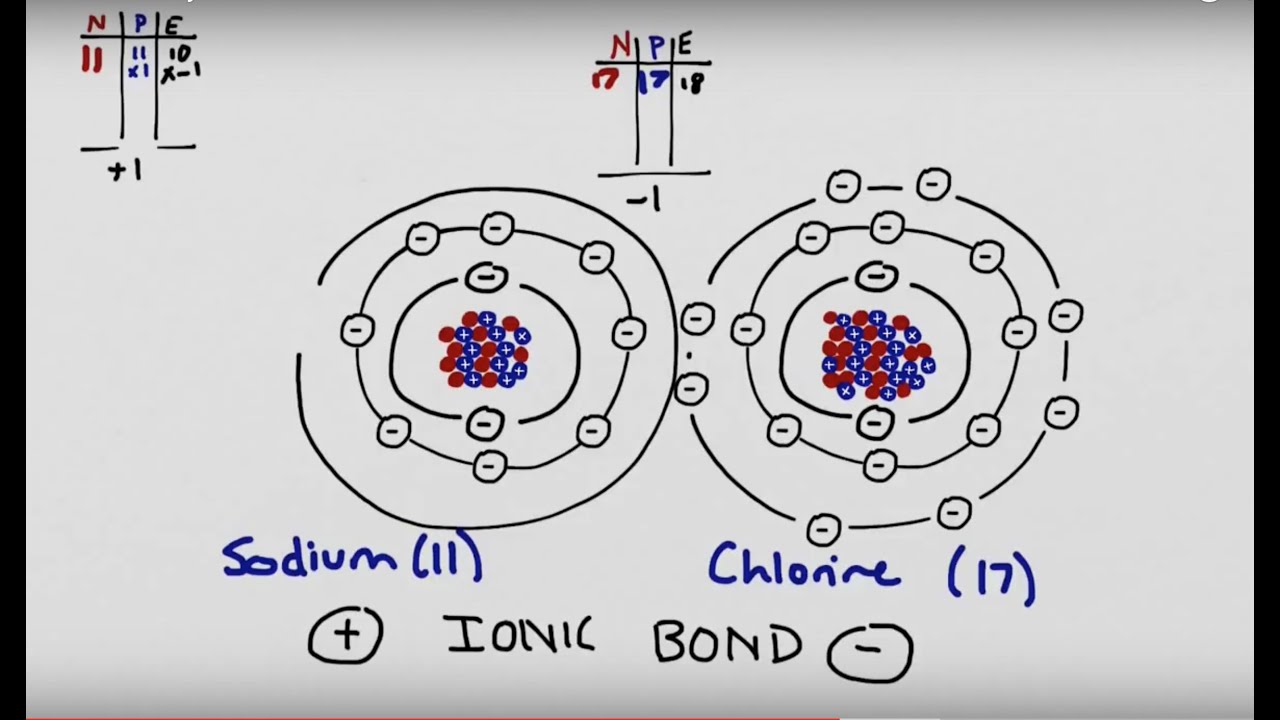 N P E
11 11 10
x1 x-1
+1
N P E
17 17 18
-1
Sodium (11)
Chlorine (17)
+ IONIC BOND -